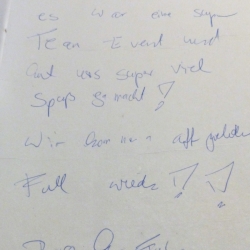 es war eine super
Team Event und
hat uns super viel
Spaß gemacht!
Wir kommen auf jeden
Fall wieder!!